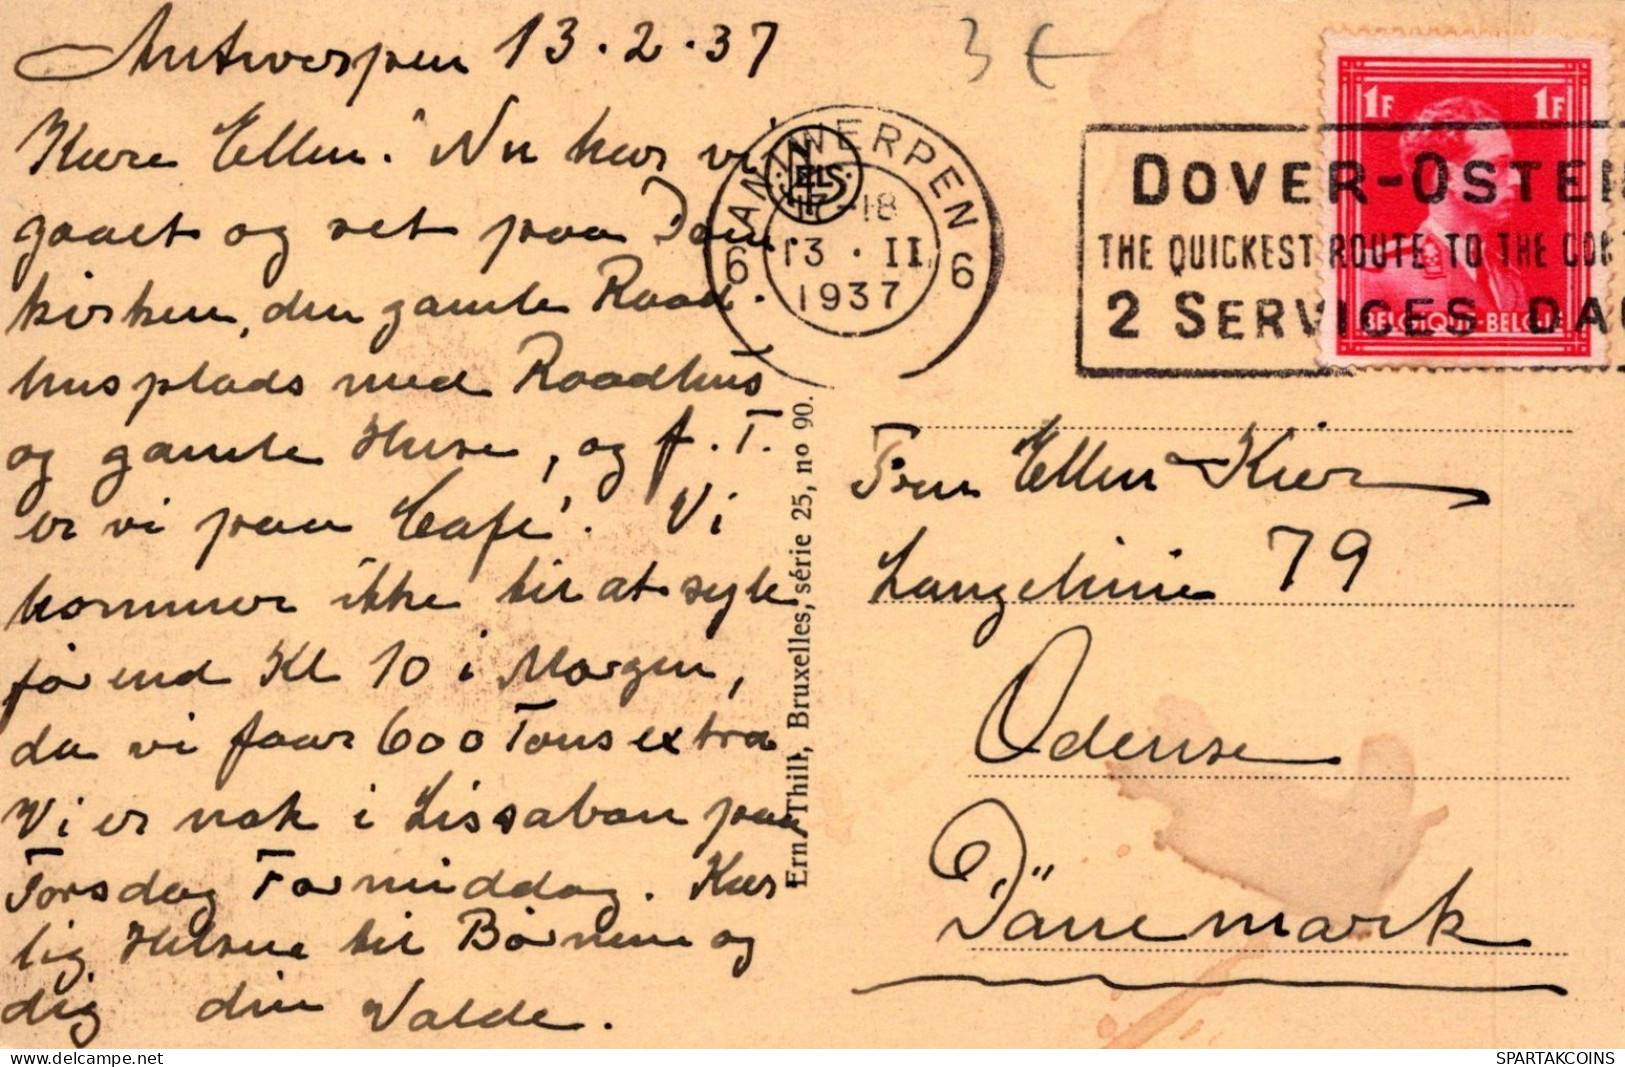 Antwerpen 13.2.37
Kære Ellen! Nu har vi
gaaet og set paa Dom
kirken, den gamle Raad-
husplads med Raadhus
og gamle Huse, og f.T.
er vi paa Café. Vi
kommer ikke til at sejle
før end Kl 10 i Morgen,
da vi faar 600 Tons extra
Vi er nok i Lissabon paa
Torsdag Formiddag. Kær
lig Hilsen til Børnene og
dig din Valde.
3 €
ANTWERPEN
6 6
17-18
13 · II
1937
NELS
DOVER-OSTEN
THE QUICKEST ROUTE TO THE CONT
2 SERVICES DA
1F 1F
BELGIQUE-BELGIË
Ern. Thill, Bruxelles, série 25, no 90.
Fru Ellen Kier
Langelinie 79
Odense
Dänemark
delcampe.net
SPARTAKCOINS